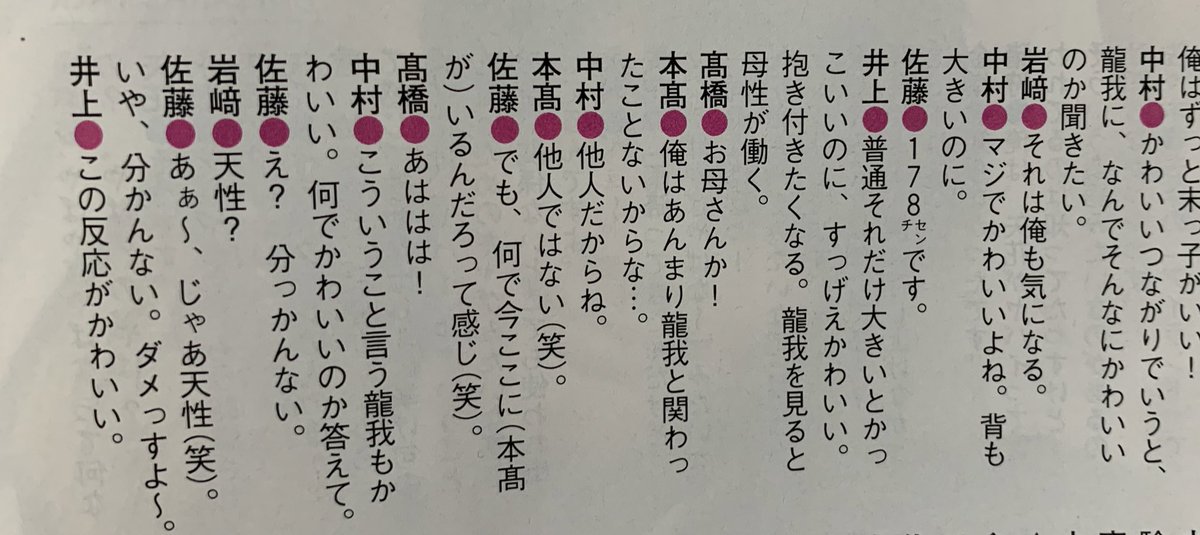 俺はずっと末っ子がいい！
中村●かわいいつながりでいうと、
龍我に、なんでそんなにかわいい
のか聞きたい。
岩﨑●それは俺も気になる。
中村●マジでかわいいよね。背も
大きいのに。
佐藤●178センチです。
井上●普通それだけ大きいとかっ
こいいのに、すっげえかわいい。
抱き付きたくなる。龍我を見ると
母性が働く。
髙橋●お母さんか！
本髙●俺はあんまり龍我と関わっ
たことないからな…。
中村●他人だからね。
本髙●他人ではない(笑)。
佐藤●でも、何で今ここに(本髙
が)いるんだろって感じ(笑)。
髙橋●あははは！
中村●こういうこと言う龍我もか
わいい。何でかわいいのか答えて。
佐藤●え？　分っかんない。
岩﨑●天性？
佐藤●あぁ～、じゃあ天性(笑)。
いや、分かんない。ダメっすよ～。
井上●この反応がかわいい。